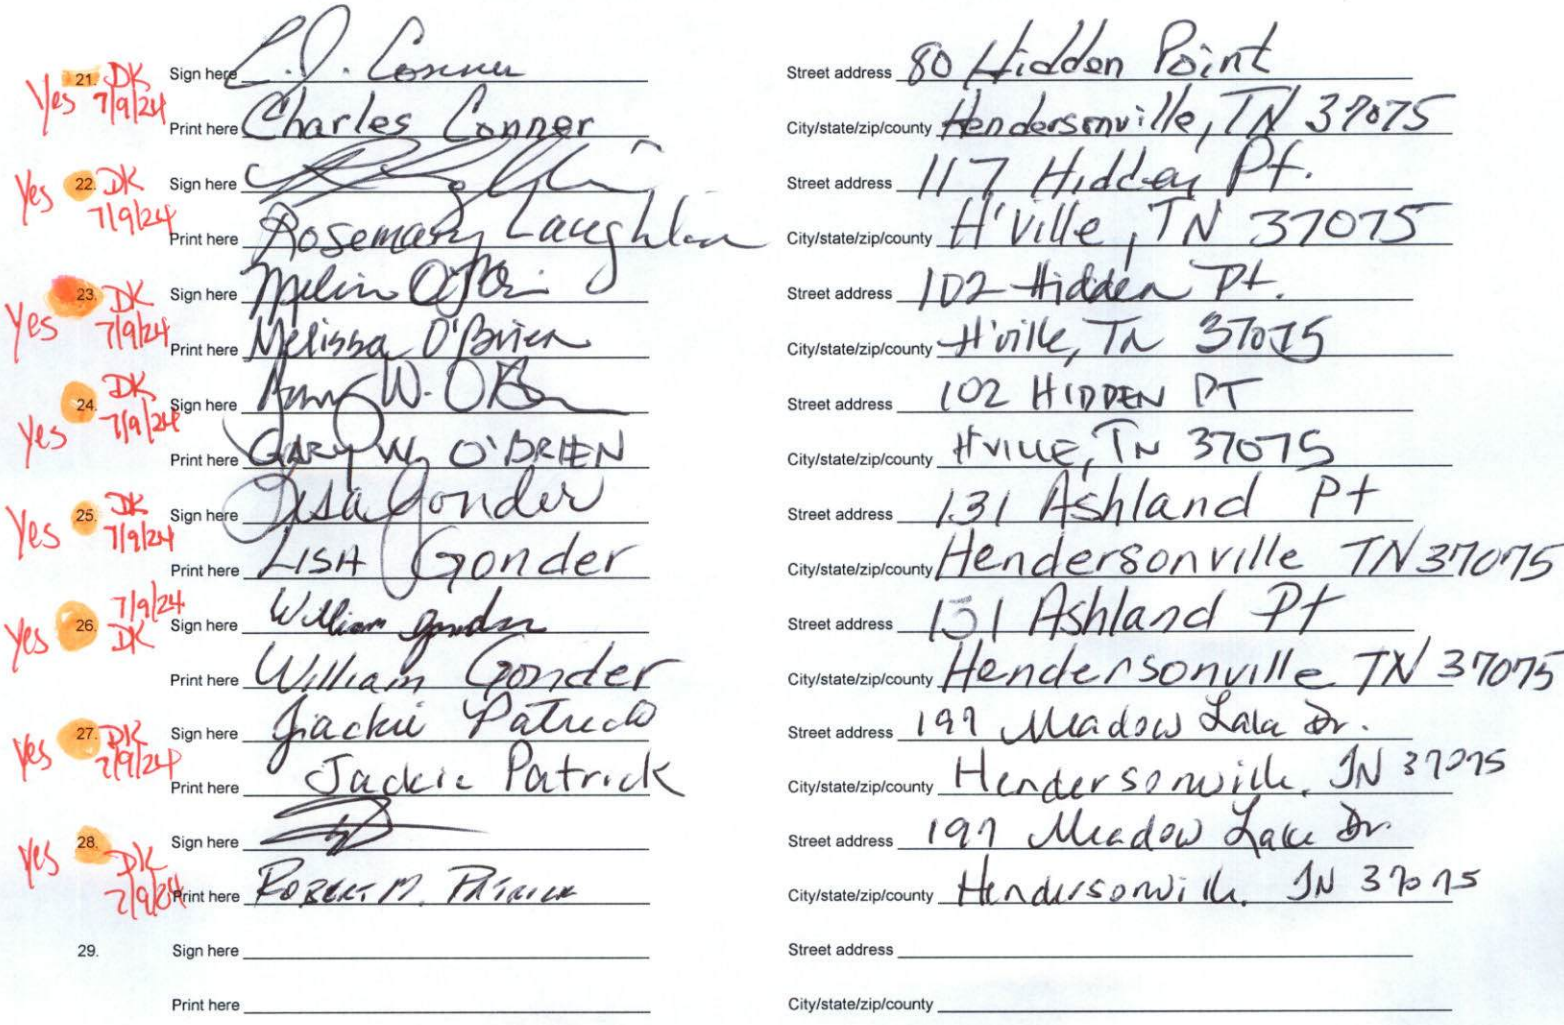 Yes 21. DK 7/9/24 Sign here C.J. Conner Street address 80 Hidden Point
Print here Charles Conner City/state/zip/county Hendersonville, TN 37075
Yes 22. DK 7/9/24 Sign here Street address 117 Hidden Pt.
Print here Rosemary Laughlin City/state/zip/county H'Ville, TN 37075
Yes 23. DK 7/9/24 Sign here Melissa O'Brien Street address 102 Hidden Pt.
Print here Melissa O'Brien City/state/zip/county H'ville, Tn 37075
Yes 24. DK 7/9/24 Sign here Gary W. O'Brien Street address 102 HIDDEN PT
Print here GARY W. O'BRIEN City/state/zip/county HVILLE, TN 37075
Yes 25. DK 7/9/24 Sign here Lisa Gonder Street address 131 Ashland Pt
Print here LISA Gonder City/state/zip/county Hendersonville TN 37075
Yes 26. 7/9/24 DK Sign here William Gonder Street address 131 Ashland Pt
Print here William Gonder City/state/zip/county Hendersonville TN 37075
Yes 27. DK 7/9/24 Sign here Jackie Patrick Street address 197 Meadow Lake Dr.
Print here Jackie Patrick City/state/zip/county Hendersonville, TN 37075
Yes 28. DK 7/9/24 Sign here Street address 197 Meadow Lake Dr.
Print here ROBERT M. PATRICK City/state/zip/county Hendersonville, TN 37075
29. Sign here Street address
Print here City/state/zip/county